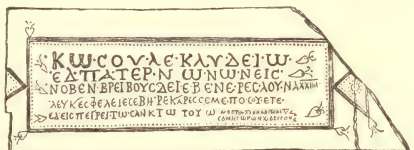 ΚΩ·CΟΥΛΕ·ΚΛΥΔΕΙ·Ω·
ΕΔ·ΠΑΤΕΡ·Ν Ω·ΝΩΝΕΙC·
ΝΟΒΕΝ·ΒΡΕΙΒΟΥC·ΔΕΙΕ·ΒΕΝΕ·ΡΕC·ΛΟΥ·ΝΑ
ΛΕΥΚΕC·ΦΕΛΕΙΕ·CΕΒΗΡΕ·ΚΑΡΕCCΕΜΕ·ΠΟ·CΟΥ·ΕΤΕ·
ΕΔΕΙCΠΕΙΡΕΙΤΩ·CΑΝΚΤΩ ΤΟΥΩ